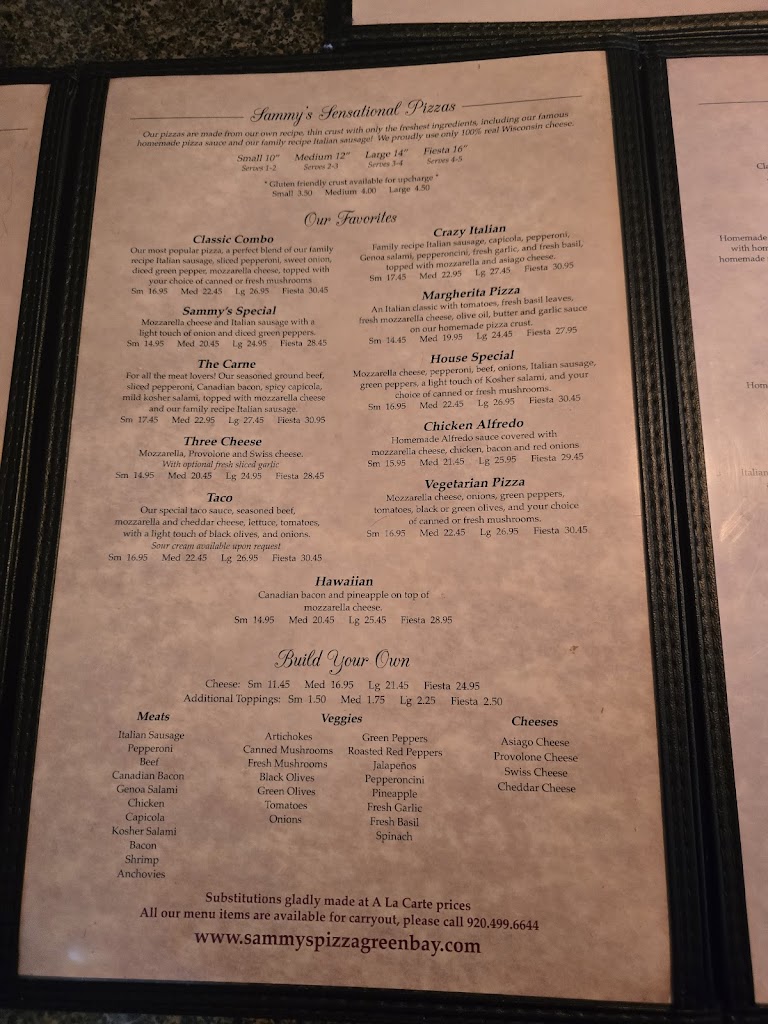 Sammy's Sensational Pizzas
Our pizzas are made from our own recipe, thin crust with only the freshest ingredients, including our famous
homemade pizza sauce and our family recipe Italian sausage! We proudly use only 100% real Wisconsin cheese.
Small 10" Medium 12" Large 14" Fiesta 16"
Serves 1-2 Serves 2-3 Serves 3-4 Serves 4-5
* Gluten friendly crust available for upcharge *
Small 3.50 Medium 4.00 Large 4.50
Our Favorites
Classic Combo
Our most popular pizza, a perfect blend of our family
recipe Italian sausage, sliced pepperoni, sweet onion,
diced green pepper, mozzarella cheese, topped with
your choice of canned or fresh mushrooms
Sm 16.95 Med 22.45 Lg 26.95 Fiesta 30.45
Sammy's Special
Mozzarella cheese and Italian sausage with a
light touch of onion and diced green peppers.
Sm 14.95 Med 20.45 Lg 24.95 Fiesta 28.45
The Carne
For all the meat lovers! Our seasoned ground beef,
sliced pepperoni, Canadian bacon, spicy capicola,
mild kosher salami, topped with mozzarella cheese
and our family recipe Italian sausage.
Sm 17.45 Med 22.95 Lg 27.45 Fiesta 30.95
Three Cheese
Mozzarella, Provolone and Swiss cheese.
With optional fresh sliced garlic
Sm 14.95 Med 20.45 Lg 24.95 Fiesta 28.45
Taco
Our special taco sauce, seasoned beef,
mozzarella and cheddar cheese, lettuce, tomatoes,
with a light touch of black olives, and onions.
Sour cream available upon request
Sm 16.95 Med 22.45 Lg 26.95 Fiesta 30.45
Crazy Italian
Family recipe Italian sausage, capicola, pepperoni,
Genoa salami, pepperoncini, fresh garlic, and fresh basil,
topped with mozzarella and asiago cheese.
Sm 17.45 Med 22.95 Lg 27.45 Fiesta 30.95
Margherita Pizza
An Italian classic with tomatoes, fresh basil leaves,
fresh mozzarella cheese, olive oil, butter and garlic sauce
on our homemade pizza crust.
Sm 14.45 Med 19.95 Lg 24.45 Fiesta 27.95
House Special
Mozzarella cheese, pepperoni, beef, onions, Italian sausage,
green peppers, a light touch of Kosher salami, and your
choice of canned or fresh mushrooms.
Sm 16.95 Med 22.45 Lg 26.95 Fiesta 30.45
Chicken Alfredo
Homemade Alfredo sauce covered with
mozzarella cheese, chicken, bacon and red onions
Sm 15.95 Med 21.45 Lg 25.95 Fiesta 29.45
Vegetarian Pizza
Mozzarella cheese, onions, green peppers,
tomatoes, black or green olives, and your choice
of canned or fresh mushrooms.
Sm 16.95 Med 22.45 Lg 26.95 Fiesta 30.45
Hawaiian
Canadian bacon and pineapple on top of
mozzarella cheese.
Sm 14.95 Med 20.45 Lg 25.45 Fiesta 28.95
Build Your Own
Cheese: Sm 11.45 Med 16.95 Lg 21.45 Fiesta 24.95
Additional Toppings: Sm 1.50 Med 1.75 Lg 2.25 Fiesta 2.50
Meats
Italian Sausage
Pepperoni
Beef
Canadian Bacon
Genoa Salami
Chicken
Capicola
Kosher Salami
Bacon
Shrimp
Anchovies
Veggies
Artichokes
Canned Mushrooms
Fresh Mushrooms
Black Olives
Green Olives
Tomatoes
Onions
Green Peppers
Roasted Red Peppers
Jalapeños
Pepperoncini
Pineapple
Fresh Garlic
Fresh Basil
Spinach
Cheeses
Asiago Cheese
Provolone Cheese
Swiss Cheese
Cheddar Cheese
Substitutions gladly made at A La Carte prices
All our menu items are available for carryout, please call 920.499.6644
www.sammyspizzagreenbay.com
Homemade
with hom
homemade
Hom
Italian